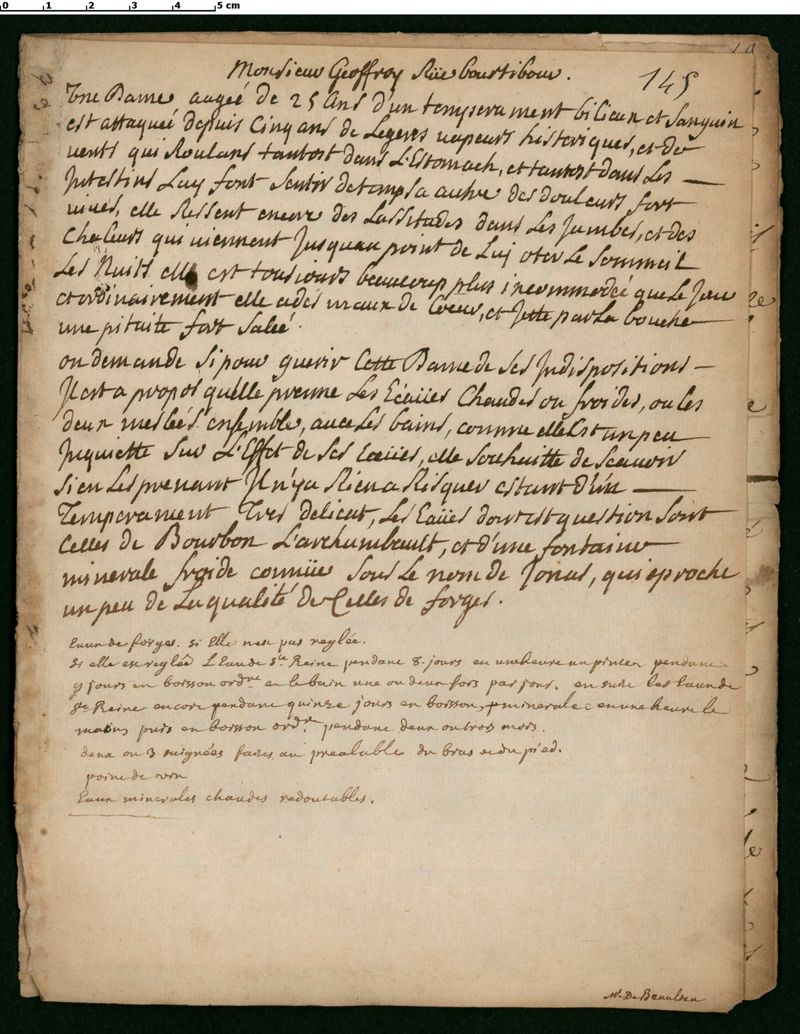 0 1 2 3 4 5 cm
Monsieur Geoffroy Rüe bourtibour.
145
Vne Dame augeé de 25 Ans d'un temperament bilieux et Sanguin
est attaqueé depuis Cinq ans de Legeres uapeurs historiques, et de
uents qui Roulans tantost dans L'Estomach, et tantost dans Les —
Jntestins Luy font Sentir de temps a autre des douleurs fort
uiues, elle Ressent encore des Lassitudes dans Les Jambes, et des
Chaleurs qui uiennent Jusquau point de Luy oter Le Sommeil
Les Nuits elle est tousiours beaucoup plus incommodeé que Le Jour
et ordinairement elle a des maux de Coeur, et Jette par La bouche
une pituite fort Saleé.
on demande Si pour querir Cette Dame de Ses Jndispositions —
Jl est a propos qu'elle prenne Les Eaües Chaudes ou froides, ou les
deux mesleés ensemble, auec Les bains, comme elle Est un peu
Jnquiette Sur L'Effet de Ses Eaües, elle Souhaitte de Scauoir
Si en Les prenant Jl n'ya Rien a Risquer estant d'un —
Temperament Tres delicat, Les Eaües dont est question Sont
Celles de Bourbon L'archambault, et d'une fontaine
minerale froide connüe Sous Le nom de Jonas, qui aproche
un peu de La qualité de Celles de forges.
Eaux de forges. si Elle nest pas reglée.
si elle est reglée L'Eau de Ste Reine pendant 8. jours en une heure un pinte pendant
9 jours en boisson ordre et le bain une ou deux fois par jour. en suite les Eaux de
Ste Reine encore pendant quinze jours en boisson minerale en une heure le
matin puis en boisson ordre pendant deux ou trois mois.
deux ou 3 saignées faites au prealable du bras et du pied.
point de vin
Eaux minerales chaudes redoutables.
Mr. De Beaulieu